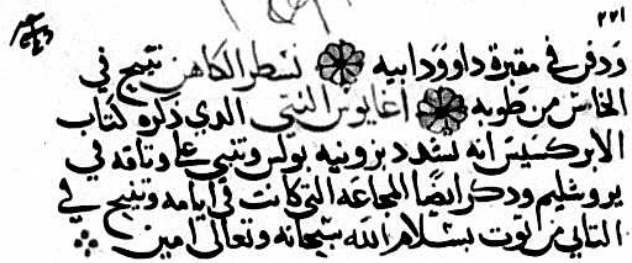 ٢٢١
ودفن في مقبرة داوود ابيه نسطر الكاهن تنيح في
الخامس من طوبه اغابوس النبي الدي ذكره كتاب
الابركسيس انه شدد بزونيه بولس وتنبي علي وتاقه في
يروشليم ودكر ايضا المجاعه التي كانت في ايامه وتنيح في
التاني من توت بسلام الله سبحانه وتعالى امين